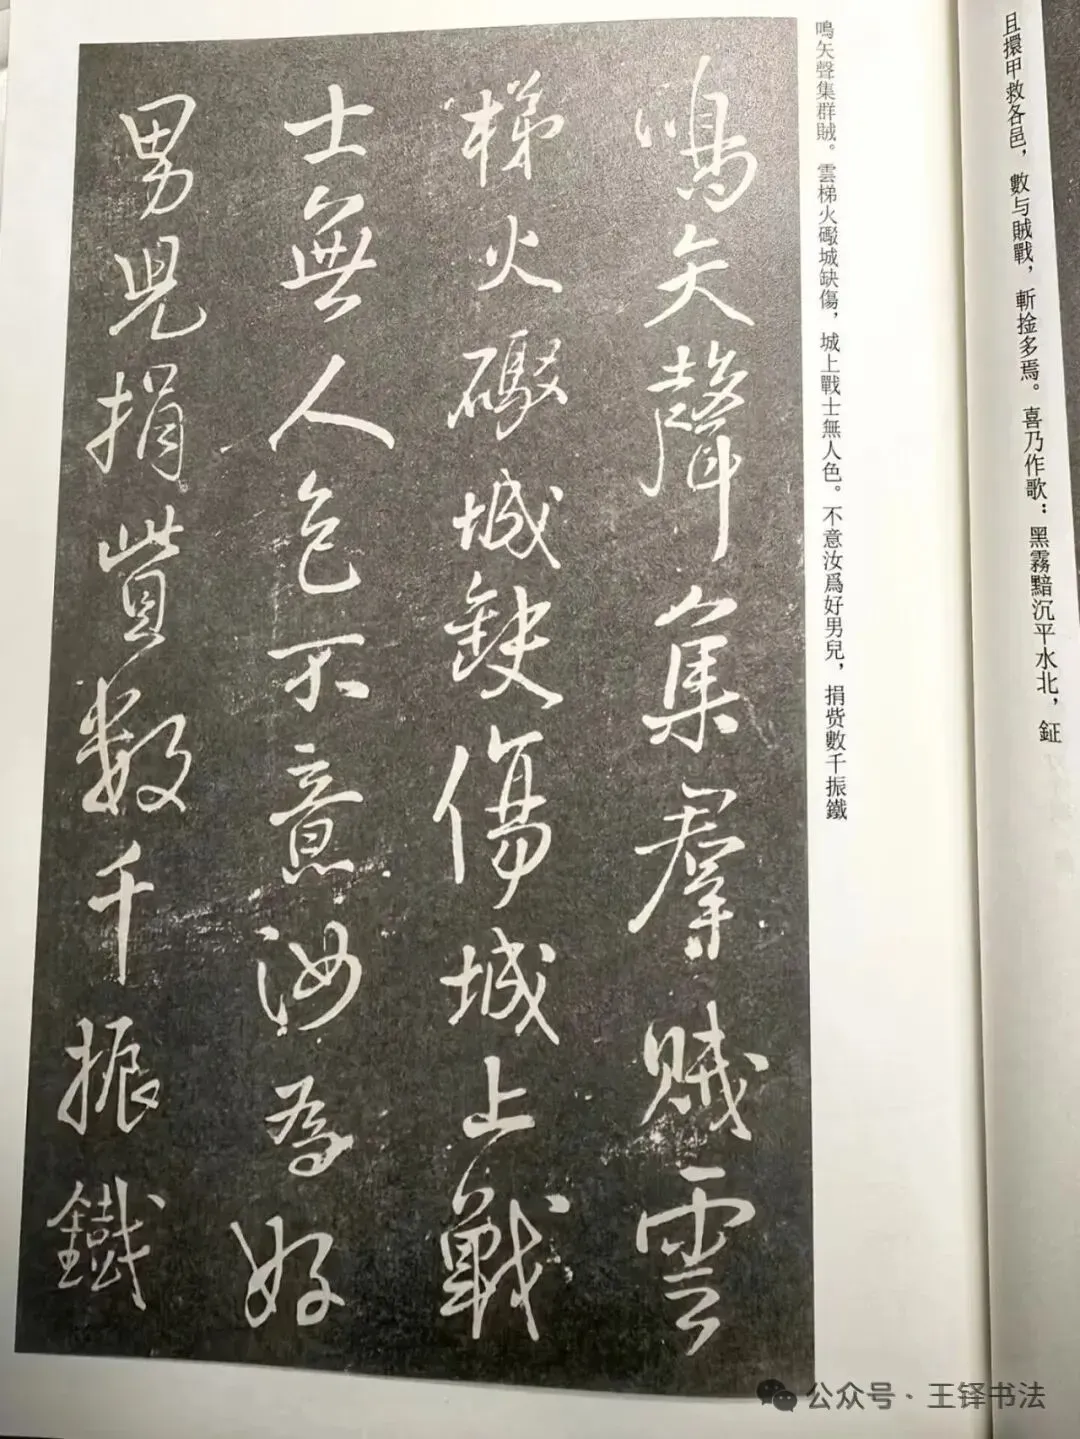 且擐甲救各邑，數与賊戰，斬捦多焉。喜乃作歌：黑霧黯沉平水北，鉦
鳴矢聲集群賊。雲梯火礮城缺傷，城上戰士無人色。不意汝爲好男兒，捐赀數千振鐵
鳴矢聲集羣賊雲
梯火礮城缺傷城上戰
士無人色不意汝為好
男兒捐貲數千振鐵
公众号·王铎书法